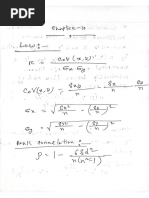 Chapter-10
Low:-
r = CoV(x,y)
σx σy
CoV(x,y) = Σxy/n - Σx/n · Σy/n
σx = √ Σx²/n - (Σx/n)²
σy = √ Σy²/n - (Σy/n)²
Rank correlation:-
ρ = 1 - 6Σd² / n(n²-1)